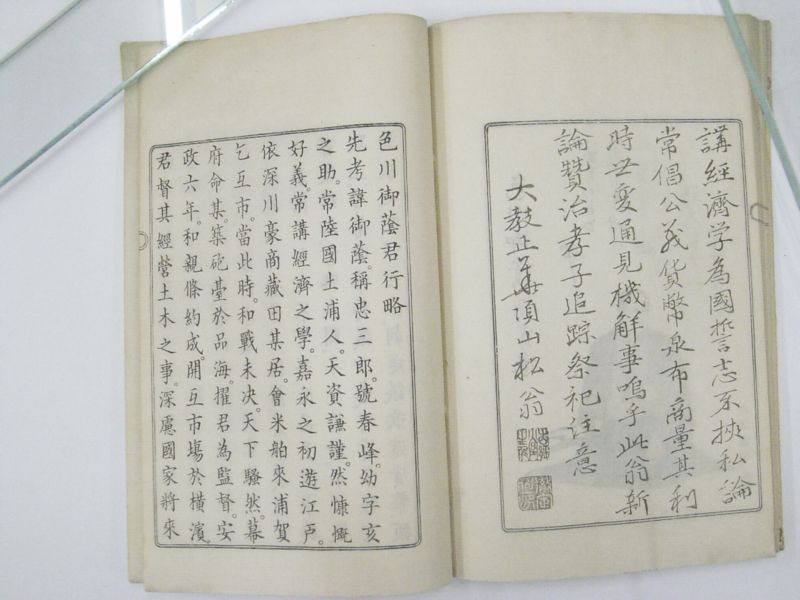 講経濟学為國誓志不挾私論
常倡公義貨幣泉布商量其利
時世変通見機解事嗚乎此翁新
論贊治孝子追踪祭祀注意
大教正華頂山松翁
色川御蔭君行略
先考諱御蔭。稱忠三郎。號春峰。幼字亥
之助。常陸國土浦人。天資謙謹。然慷慨
好義。常講經濟之學。嘉永之初遊江戸。
依深川豪商藏田某居。會米舶來浦賀
乞互市。當此時。和戰未決。天下騷然。幕
府命某。築砲臺於品海。擢君為監督。安
政六年。和親條約成。開互市場於橫濱。
君督其經營土木之事。深慮國家將來